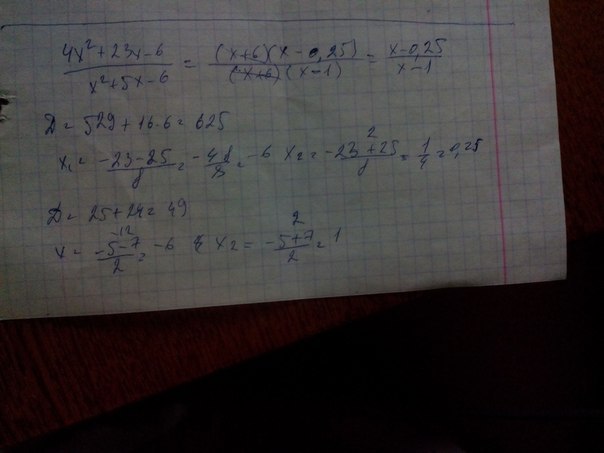 (4x²+23x-6)/(x²+5x-6) = ((x+6)(x-0,25))/((x+6)(x-1)) = (x-0,25)/(x-1)
D = 529+16·6 = 625
x₁ = (-23-25)/8 = -48/8 = -6 x₂ = (-23+25)/8 = 1/4 = 0,25 2
D = 25+24 = 49
x = (-5-7)/2 = -6 -12 x₂ = (-5+7)/2 = 1 2